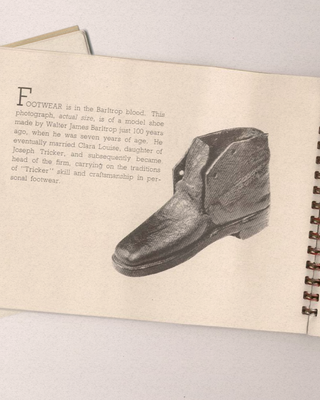 FOOTWEAR is in the Barltrop blood. This
photograph, actual size, is of a model shoe
made by Walter James Barltrop just 100 years
ago, when he was seven years of age. He
eventually married Clara Louise, daughter of
Joseph Tricker, and subsequently became
head of the firm, carrying on the traditions
of "Tricker" skill and craftsmanship in per-
sonal footwear.